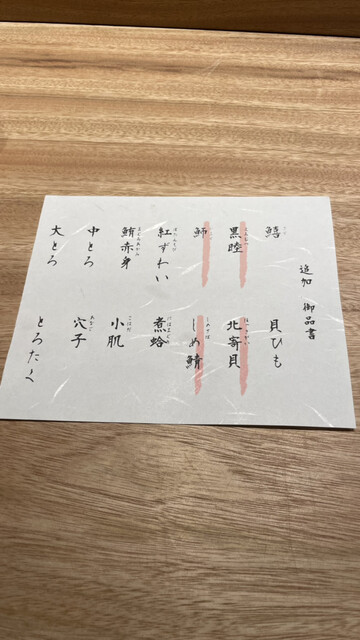 追加 御品書
鱚 貝ひも
黒睦 北寄貝
鰤 しめ鯖
紅ずわい 煮蛤
鮪赤身 小肌
中とろ 穴子
大とろ とろたく